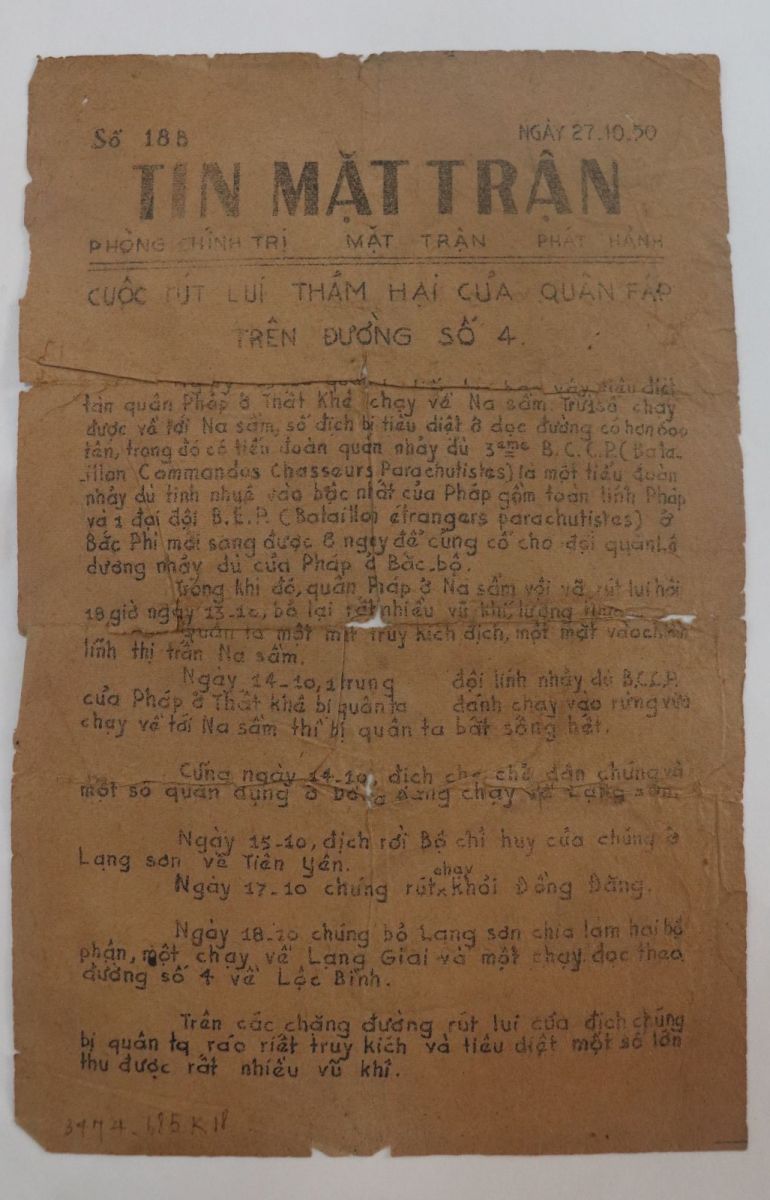 Số 188
NGÀY 27.10.50
TIN MẶT TRẬN
PHÒNG CHÍNH TRỊ MẶT TRẬN PHÁT HÀNH
CUỘC RÚT LUI THẢM HẠI CỦA QUÂN FÁP
TRÊN ĐƯỜNG SỐ 4.
vây tiêu diệt
tàn quân Pháp ở Thất Khê chạy về Na sầm. Trừ số chạy
được về tới Na sầm, số địch bị tiêu diệt ở dọc đường có hơn 600
tên, trong đó có tiểu đoàn quân nhảy dù 3ème B.C.C.P. (Bata-
illon Commandos Chasseurs Parachutistes) là một tiểu đoàn
nhảy dù tinh nhuệ vào bậc nhất của Pháp gồm toàn lính Pháp
và 1 đại đội B.E.P. (Bataillon étrangers parachutistes) ở
Bắc Phi mới sang được 8 ngày để củng cố cho đội quân Lê
dương nhảy dù của Pháp ở Bắc-bộ.
Trong khi đó, quân Pháp ở Na sầm vội vã rút lui hồi
18 giờ ngày 13-10, bỏ lại rất nhiều vũ khí, lương
quân ta một mặt truy kích địch, một mặt vào chiếm
lĩnh thị trấn Na sầm.
Ngày 14-10, 1 trung đội lính nhảy dù B.C.C.P.
của Pháp ở Thất khê bị quân ta đánh chạy vào rừng vừa
chạy về tới Na sầm thì bị quân ta bắt sống hết.
Cũng ngày 14-10, địch cho chở dân chúng và
một số quân dụng ở Đồng đăng chạy về Lạng sơn.
Ngày 15-10, địch rời Bộ chỉ huy của chúng ở
Lạng sơn về Tiên Yên.
Ngày 17-10 chúng rút chạy khỏi Đồng Đăng.
Ngày 18-10 chúng bỏ Lạng sơn chia làm hai bộ
phận, một chạy về Lạng Giai và một chạy dọc theo
đường số 4 về Lộc Bình.
Trên các chặng đường rút lui của địch chúng
bị quân ta ráo riết truy kích và tiêu diệt một số lớn
thu được rất nhiều vũ khí.
3974-685.K18